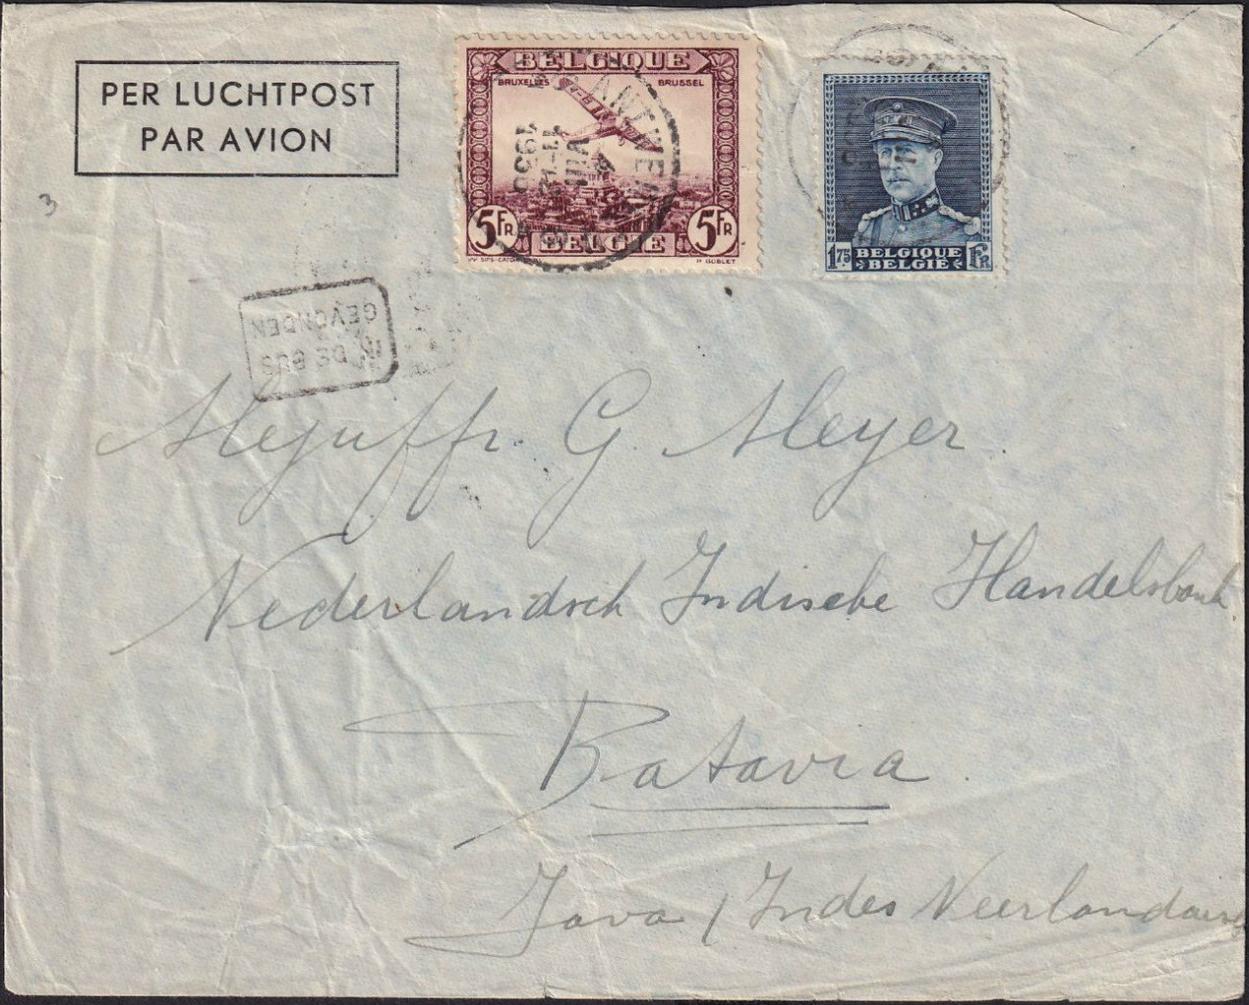 PER LUCHTPOST
PAR AVION
BELGIQUE
BRUXELLES BRUSSEL
5FR 5FR
BELGIË
H GOBLET
ANTWERPEN
4
VIII
11-12
1930
1 75 BELGIQUE FR
BELGIË
3
IN DE BUS
GEVONDEN
Mejuffr. G. Meyer.
Nederlandsch Indische Handelsbank
Batavia.
Java / Indes Neerlandaises